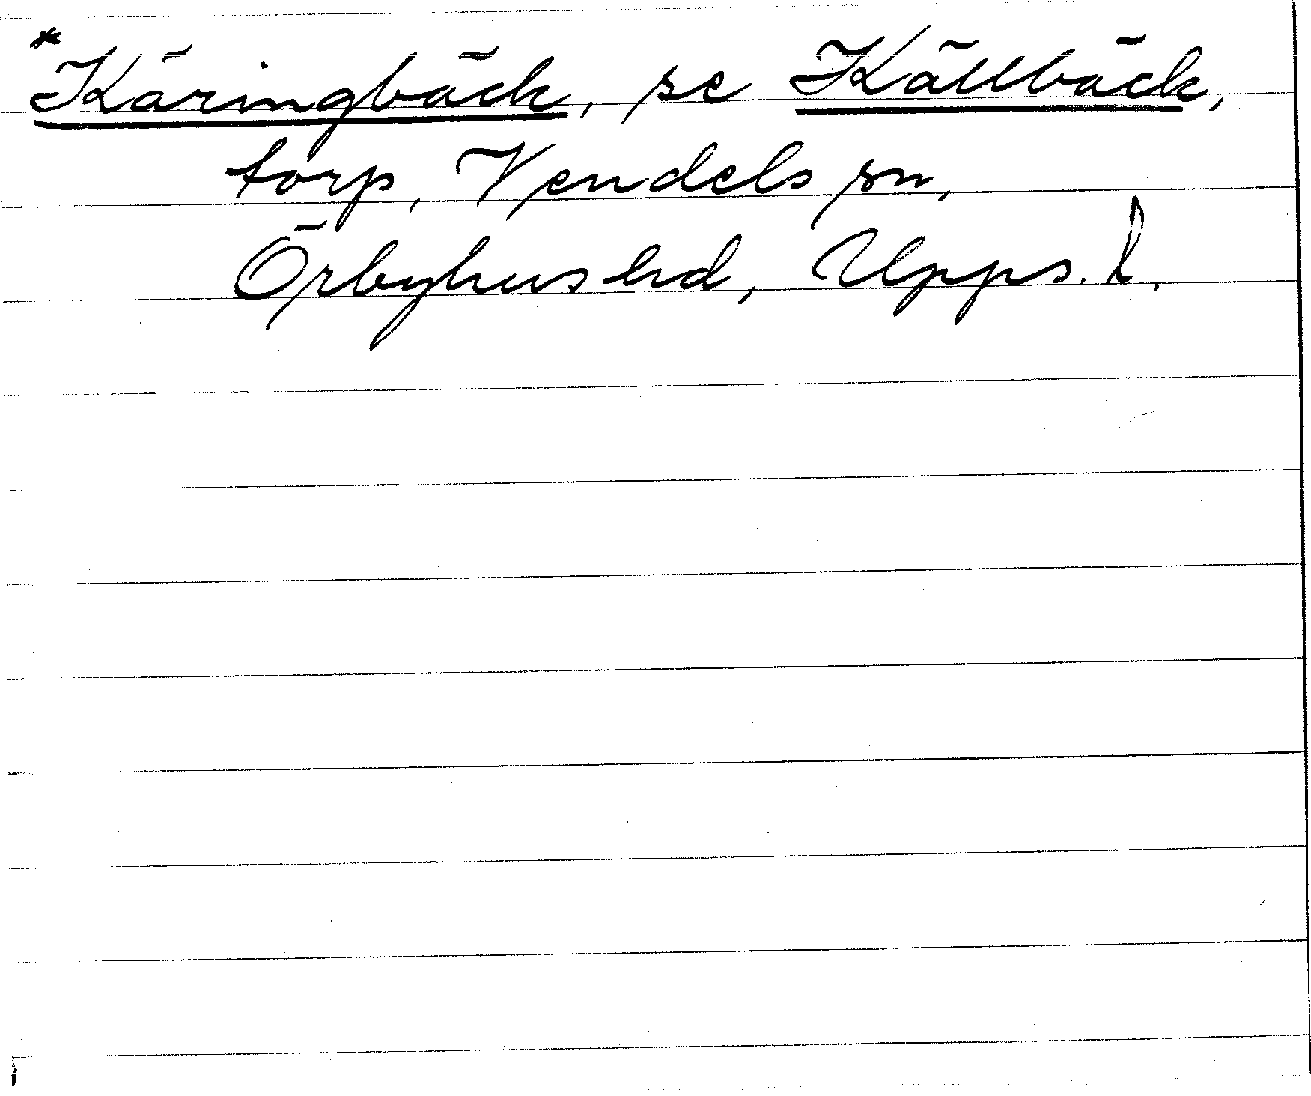 *Käringbäck, se Källbäck,
torp, Vendels sn,
Örbyhus hd, Upps. l.